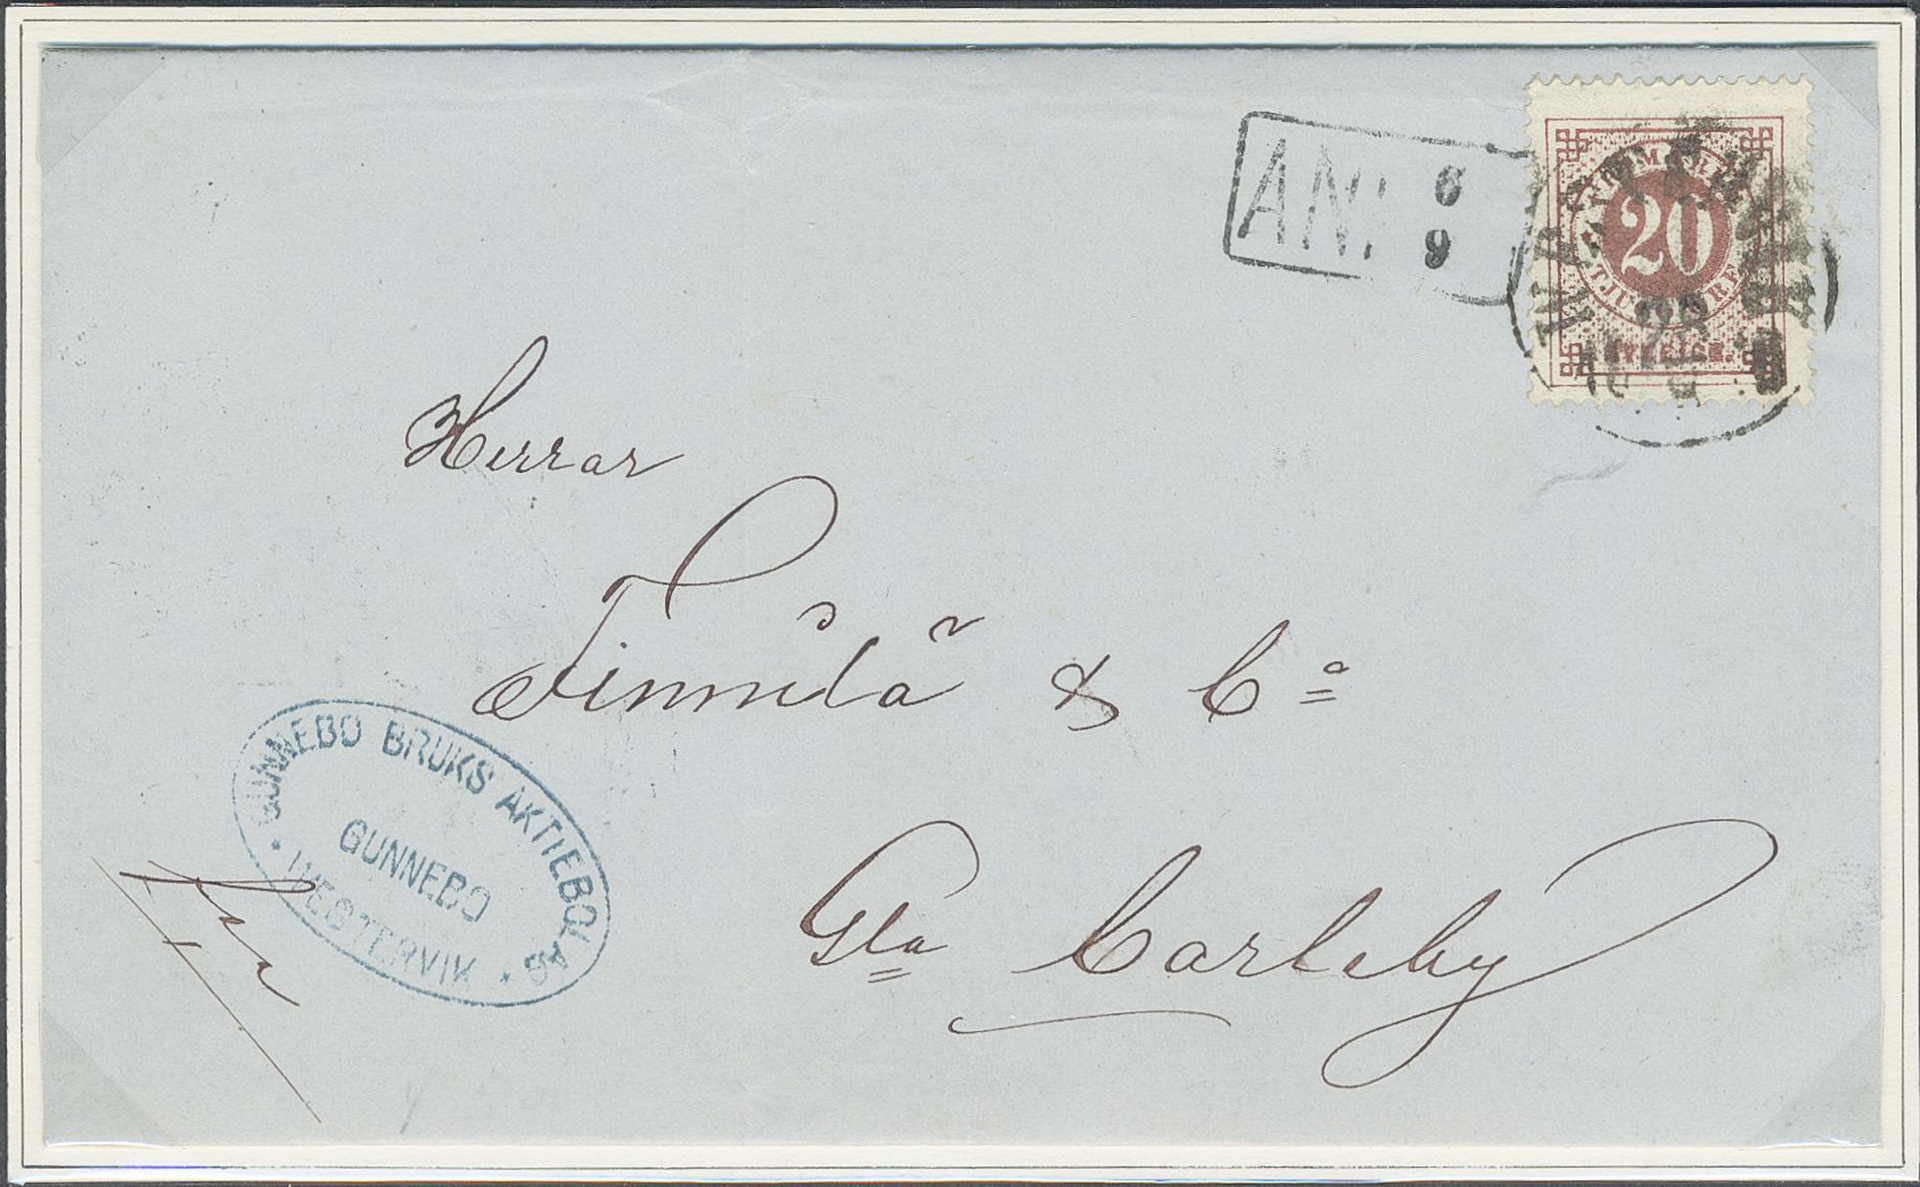 ANK
6
9
FRIMÄRKE
TJUGO ÖRE
20
SVERIGE.
Herrar
& Co
Gla Carleby
GUNNEBO BRUKS AKTIEBOLAG
GUNNEBO
WESTERVIK